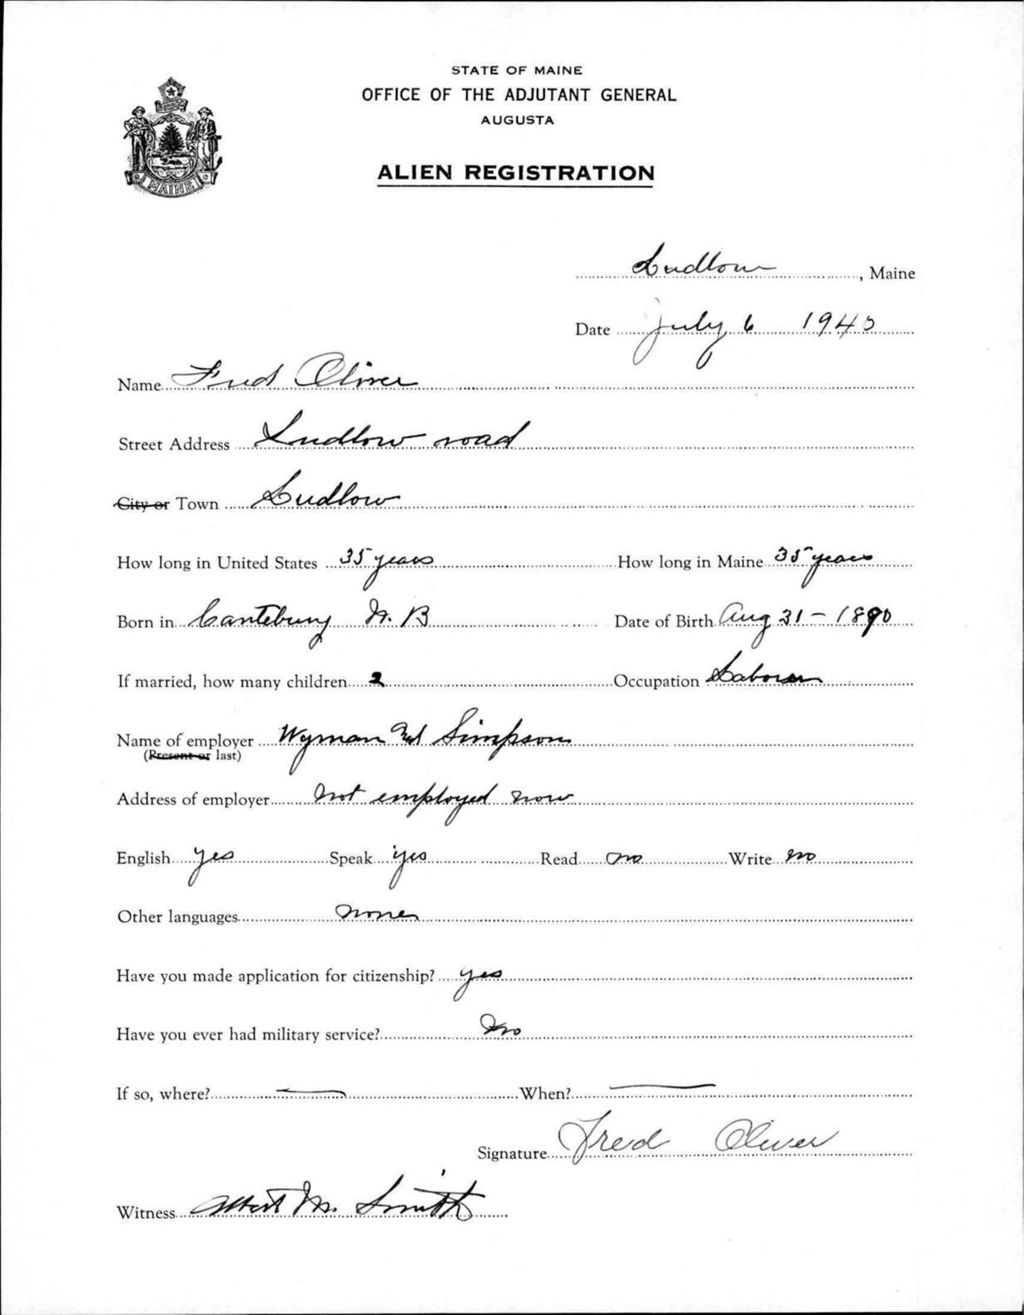 STATE OF MAINE
OFFICE OF THE ADJUTANT GENERAL
AUGUSTA
ALIEN REGISTRATION
MAINE
Ludlow, Maine
Date July 6 1940
Name Fred Oliver
Street Address Ludlow road
City or Town Ludlow
How long in United States 35 years How long in Maine 35 years
Born in Cantebury N. B Date of Birth Aug 31 - 1890
If married, how many children 2 Occupation Laborer
Name of employer Wyman Simpson
(Present or last)
Address of employer Not employed now
English yes Speak yes Read no Write no
Other languages None
Have you made application for citizenship? yes
Have you ever had military service? No
If so, where? — When? —
Signature Fred Oliver
Witness Albert M. Smith